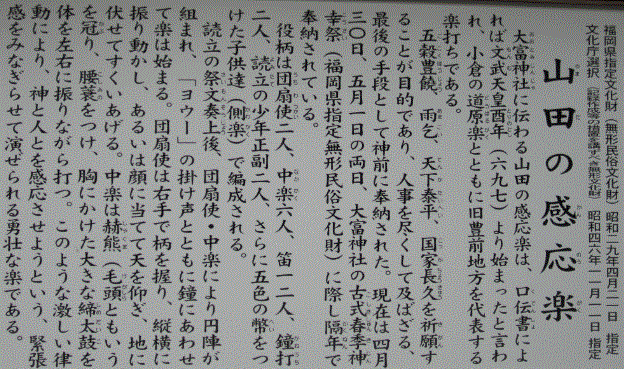 福岡県指定文化財（無形民俗文化財）昭和二九年四月二一日 指定
文化庁選択（記録作成等の措置を講ずべき無形文化財）昭和四六年一一月一一日 指定
山田の感応楽
大富神社に伝わる山田の感応楽は、口伝書によ
れば文武天皇酉年（六九七）より始まったと言わ
れ、小倉の道原楽とともに旧豊前地方を代表する
楽打ちである。
五穀豊饒、雨乞、天下泰平、国家長久を祈願す
ることが目的であり、人事を尽くして及ばざる、
最後の手段として神前に奉納された。現在は四月
三〇日、五月一日の両日、大富神社の古式春季神
幸祭（福岡県指定無形民俗文化財）に際し隔年で
奉納されている。
役柄は団扇使二人、中楽六人、笛一二人、鐘打
二人、読立の少年正副二人、さらに五色の幣をつ
けた子供達（側楽）で編成される。
読立の祭文奏上後、団扇使・中楽により円陣が
組まれ、「ヨウー」の掛け声とともに鐘にあわせ
て楽は始まる。団扇使は右手で柄を握り、縦横に
振り動かし、あるいは顔に当てて天を仰ぎ、地に
伏せてすくいあげる。中楽は赫熊（毛頭ともいう）
を冠り、腰蓑をつけ、胸にかけた大きな締太鼓を
体を左右に振りながら打つ。このような激しい律
動により、神と人とを感応させようという、緊張
感をみなぎらせて演ぜられる勇壮な楽である。